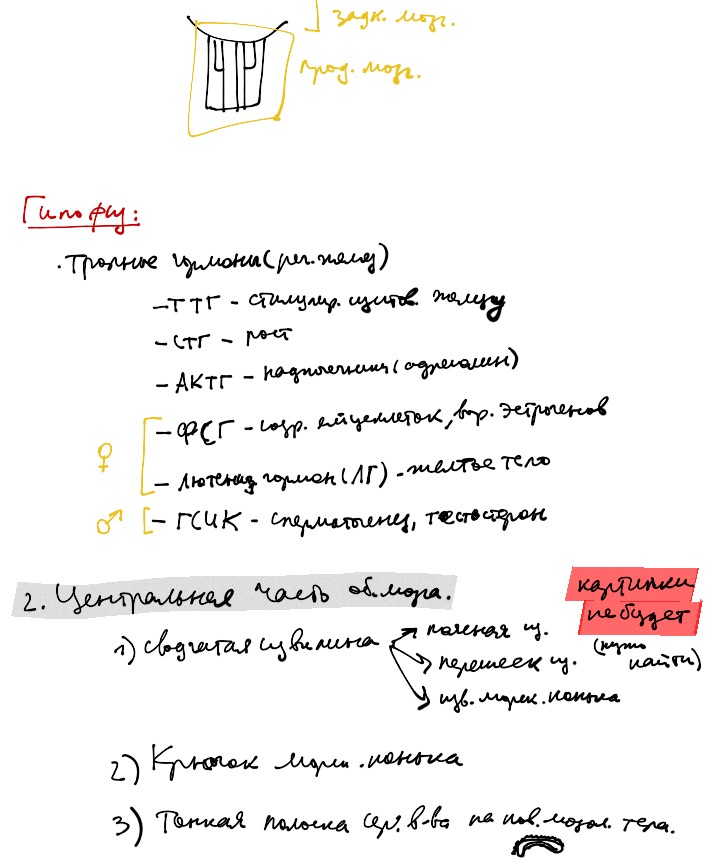 задн. мозг.
прод. мозг.
Гипофиз:
· Тропные гормоны (рег. желез)
– ТТГ – стимулир. щитов. железу
– СТГ – рост
– АКТГ – надпочечники (адреналин)
♀ – ФСГ – созр. яйцеклеток, выр. эстрогенов
– Лютеиниз гормон (ЛГ) – желтое тело
♂ – ГСИК – сперматогенез, тестостерон
2. Центральная часть об. мозга.
картинки
не будет
(нужно
найти)
1) сводчатая извилина
поясная из.
перешеек из.
изв. морск. конька
2) Крючок морск. конька
3) Тонкая полоска сер. в-ва на пов. мозол. тела.